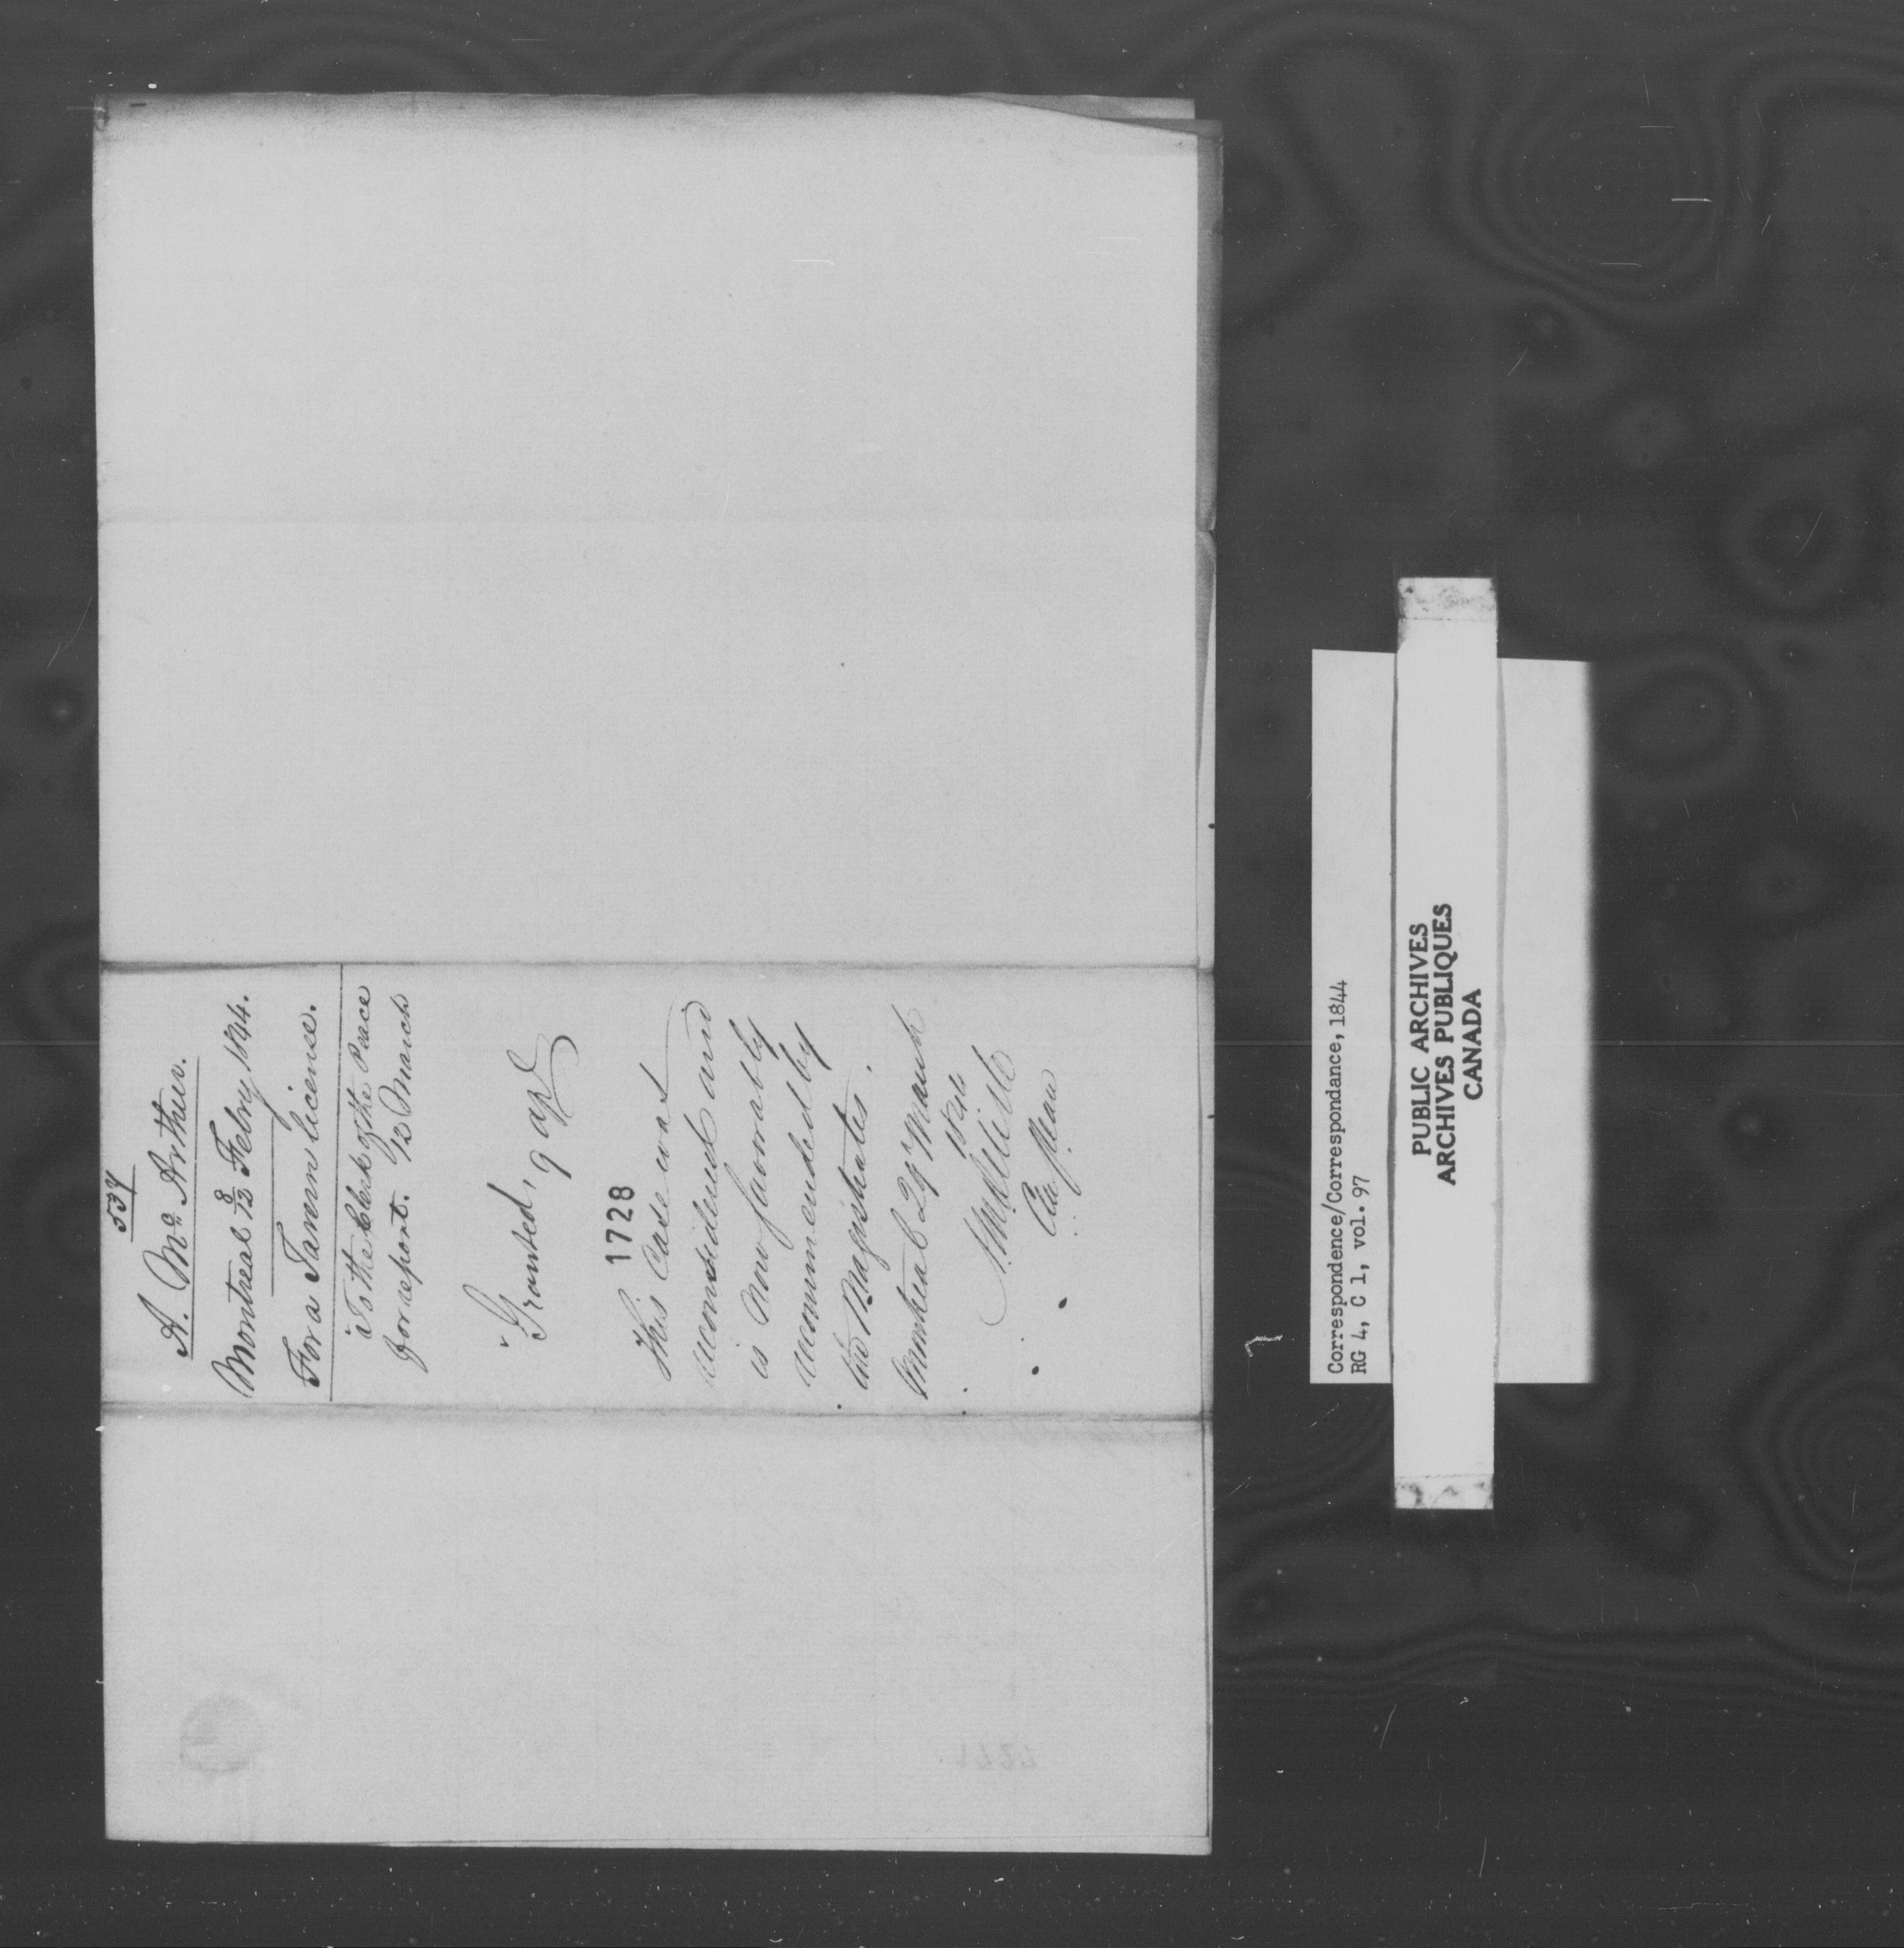 534
A. Mc Arthur.
Montreal 8/12 Febry 1844.
For a Tavern license.
To the Clerk of the Peace
for report. 12 March
Granted, 9 ap
1728
This Case was
reconsidered and
is now favorably
recommended by
the Magistrates.
Montreal 29 March
1844
Clk Peace
Correspondence/Correspondance, 1844
RG 4, C 1, vol. 97
PUBLIC ARCHIVES
ARCHIVES PUBLIQUES
CANADA